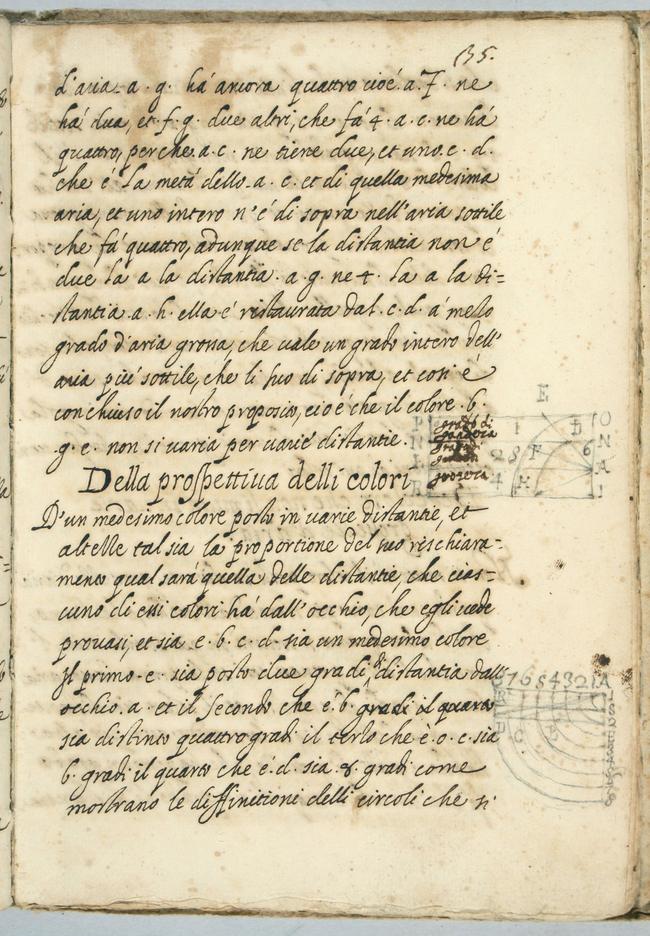 135.
L'aria . a . g . há ancora quattro cioé . a . f . ne
há dua, et . f . g . due altri, che fá 4 . a . c . ne há
quattro, perche . a . c . ne tiene due, et uno . c . d .
che é la metá dello . a . c . et di quella medesima
aria, et uno intero n'é di sopra nell'aria sottile
che fá quattro, adunque se la distantia non é
due la a la distantia . a . g . ne 4 . la a la di=
stantia . a . h . ella é ristaurata dal . c . d . á mezzo
grado d'aria grossa, che vale un grado intero dell'
aria piú sottile, che li stuo di sopra, et cosi é
conchiuso il nostro proposito, cioé che il colore . b .
g . e . non si varia per varie distantie .
Della prospettiva delli colori
D'un medesimo colore posto in varie distantie, et
altezze tal sia la proportione del suo rischiara-
mento qual sará quella delle distantie, che cias=
cuno di essi colori há dall'occhio, che egli vede
provasi, et sia . e . b . c . d . sia un medesimo colore
Il primo . e . sia posto due gradi di distantia dall'
occhio . a . et il secondo che é . b . gradi il quarto
sia distinto quattro gradi il terzo che è . o . c . sia
6 . gradi il quarto che é . d . sia . 8 . gradi come
mostrano le diffinitioni delli circoli che si
E
grado di
grossezza
I
B
O
N
A
I
2
8
F
6
4
H
8 7 6 5 4 3 2 1 A
C